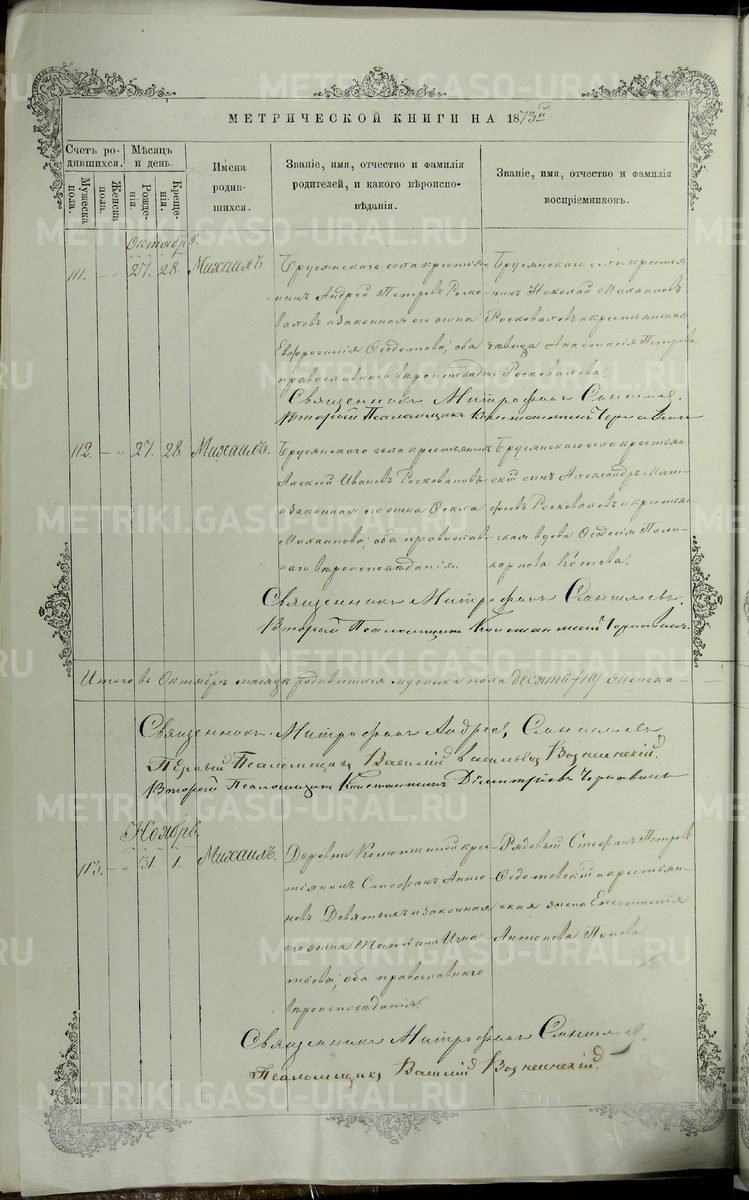 МЕТРИЧЕСКОЙ КНИГИ НА 1873й
Счетъ родившихся.
Мужеска пола.
Женска пола.
Мѣсяцъ и день.
Рожденія.
Крещенія.
Имена родившихся.
Званіе, имя, отчество и фамилія родителей, и какого вѣроисповѣданія.
Званіе, имя, отчество и фамилія воспріемниковъ.
Октябрь.
111. — „ 27. 28. Михаилъ.
Брусянскаго села крестья-
нинъ Андрей Петровъ Роско-
валовъ и законная его жена
Евфросинія Ѳедотова; оба
православнаго вѣроисповѣд.
Брусянскаго села крестья-
нинъ Николай Михаиловъ
Росковаловъ и крестьянская
дѣвица Анастасія Петрова
Росковалова.
Священникъ Митрофанъ
Второй Псаломщикъ Константинъ
112. — „ 27. 28. Михаилъ.
Брусянскаго села крестьянинъ
Алексій Ивановъ Росковаловъ
и законная его жена Ѳекла
Михаилова; оба православ-
наго вѣроисповѣданія.
Брусянскаго села крестьян-
скій сынъ Александръ Мат-
ѳеевъ Росковаловъ и крестьян-
ская вдова Ѳеодосія Поли-
карпова Котова.
Священникъ Митрофанъ
Второй Псаломщикъ Константинъ
Итого въ Октябрѣ мѣсяцѣ родившихся мужеска пола десять /10/ женска —
Священникъ Митрофанъ Андреевъ
Первый Псаломщикъ Василій Васильевъ Вознесенскій.
Второй Псаломщикъ Константинъ Димитріевъ
Ноябрь.
113. — „ 31. 1. Михаилъ.
Деревни Колюткиной крес-
тьянинъ Стефанъ Анто-
новъ Девятыхъ и законная
его жена Татіана Игна-
тьева; оба православнаго
вѣроисповѣданія.
Рядовый Стефанъ Петровъ
Ѳедотовскій и крестьян-
ская жена
Антонова Попова
Священникъ Митрофанъ
Псаломщикъ Василій Вознесенскій.
METRIKI.GASO-URAL.RU